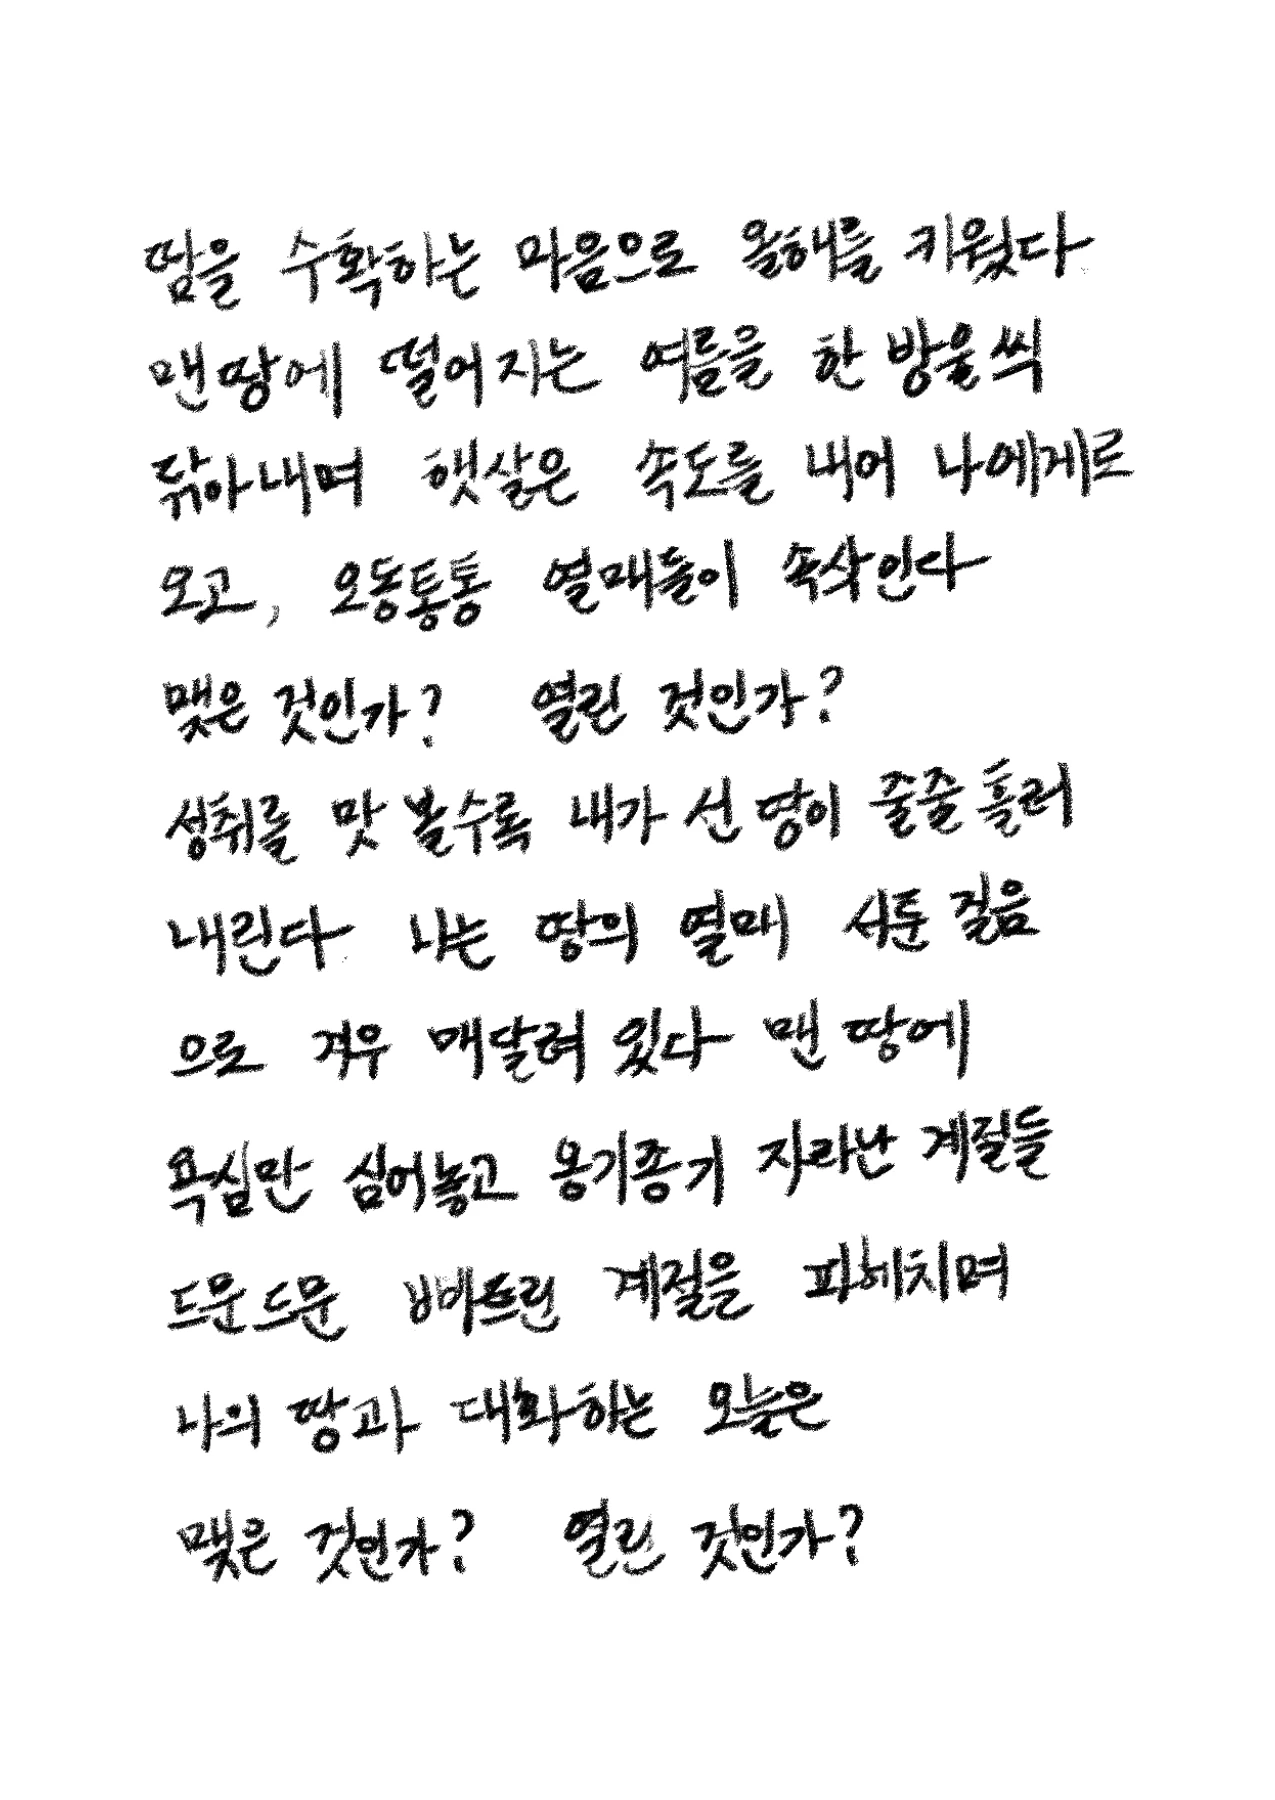 땀을 수확하는 마음으로 올해를 키웠다.
맨땅에 떨어지는 여름을 한 방울씩
닦아내며 햇살은 속도를 내어 나에게로
오고, 오동통통 열매들이 속삭인다
맺은 것인가? 열린 것인가?
성취를 맛 볼수록 내가 선 땅이 줄줄 흘러
내린다. 나는 땅의 열매 서툰 걸음
으로 겨우 매달려 있다 맨 땅에
욕심만 심어놓고 옹기종기 자라난 계절들
드문드문 빠뜨린 계절을 파헤치며
나의 땅과 대화하는 오늘은
맺은 것인가? 열린 것인가?